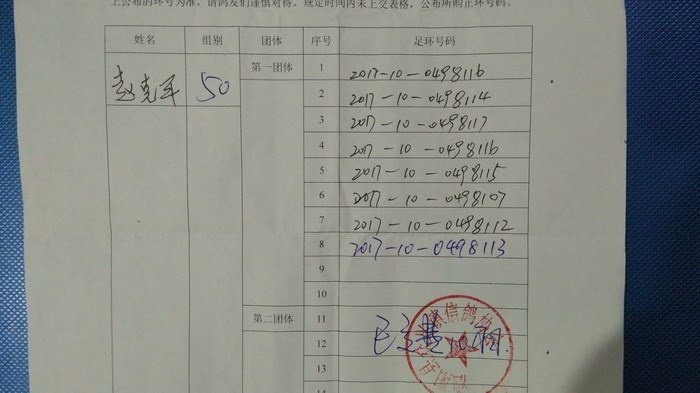 上公布的环号为准，请鸽友们谨慎对待。规定时间内未上交表格，公布所购正环号码。
姓名 组别 团体 序号 足环号码
赵克军 50 第一团体 1 2017-10-0498116
2 2017-10-0498114
3 2017-10-0498117
4 2017-10-0498116
5 2017-10-0498115
6 2017-10-0498107
7 2017-10-0498112
8 2017-10-0498113
9
10
第二团体 11
12
13
14
信鸽协